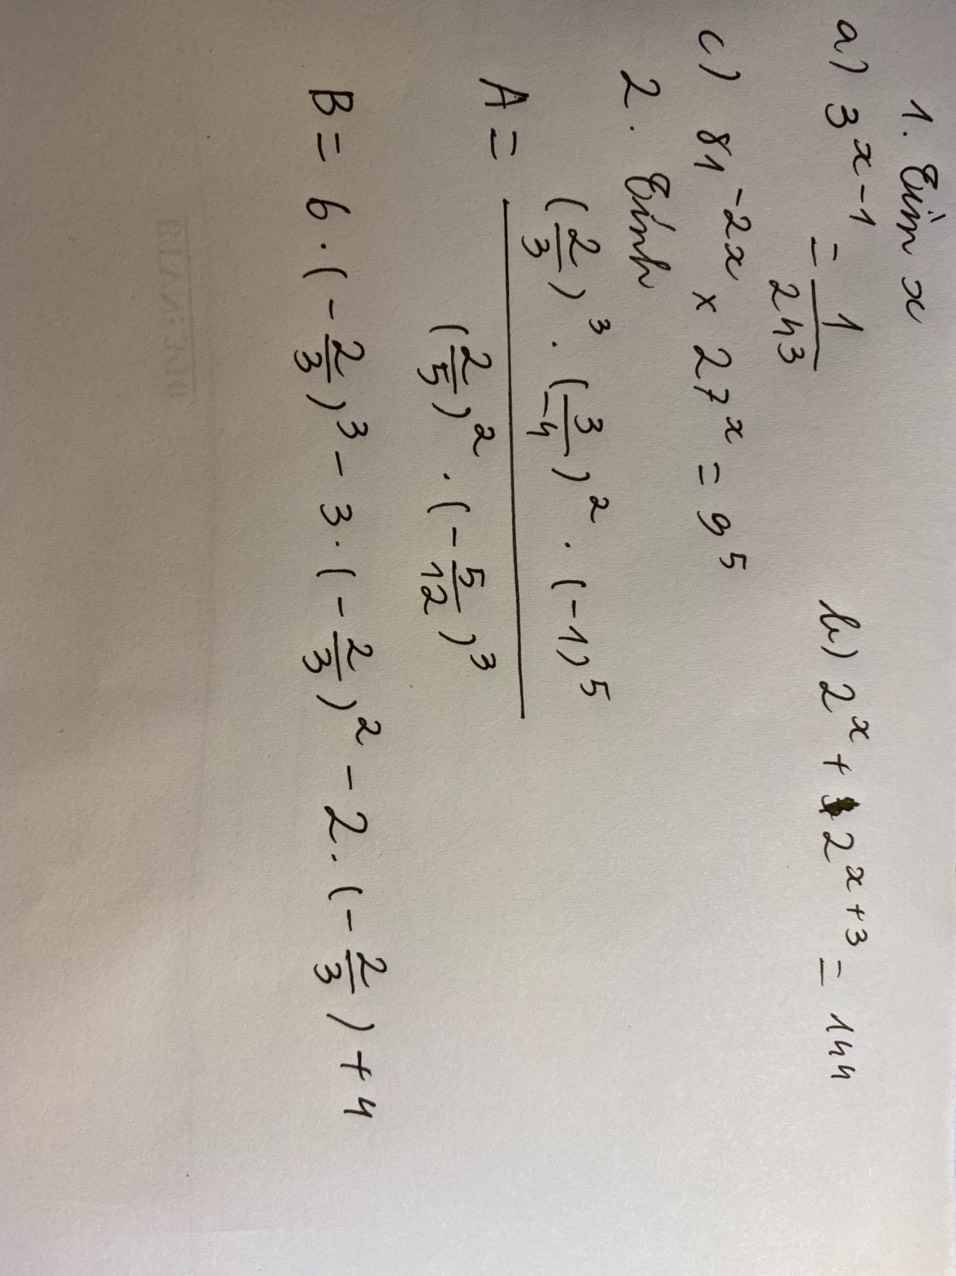 1. Tìm x
a) 3^{x-1} = \frac{1}{243} b) 2^x + 2^{x+3} = 144
c) 81^{-2x} × 27^x = 9^5
2. Tính
A = \frac{(\frac{2}{3})^3 . (\frac{3}{-4})^2 . (-1)^5}{(\frac{2}{5})^2 . (-\frac{5}{12})^3}
B = 6 . (-\frac{2}{3})^3 - 3 . (-\frac{2}{3})^2 - 2 . (-\frac{2}{3}) + 4